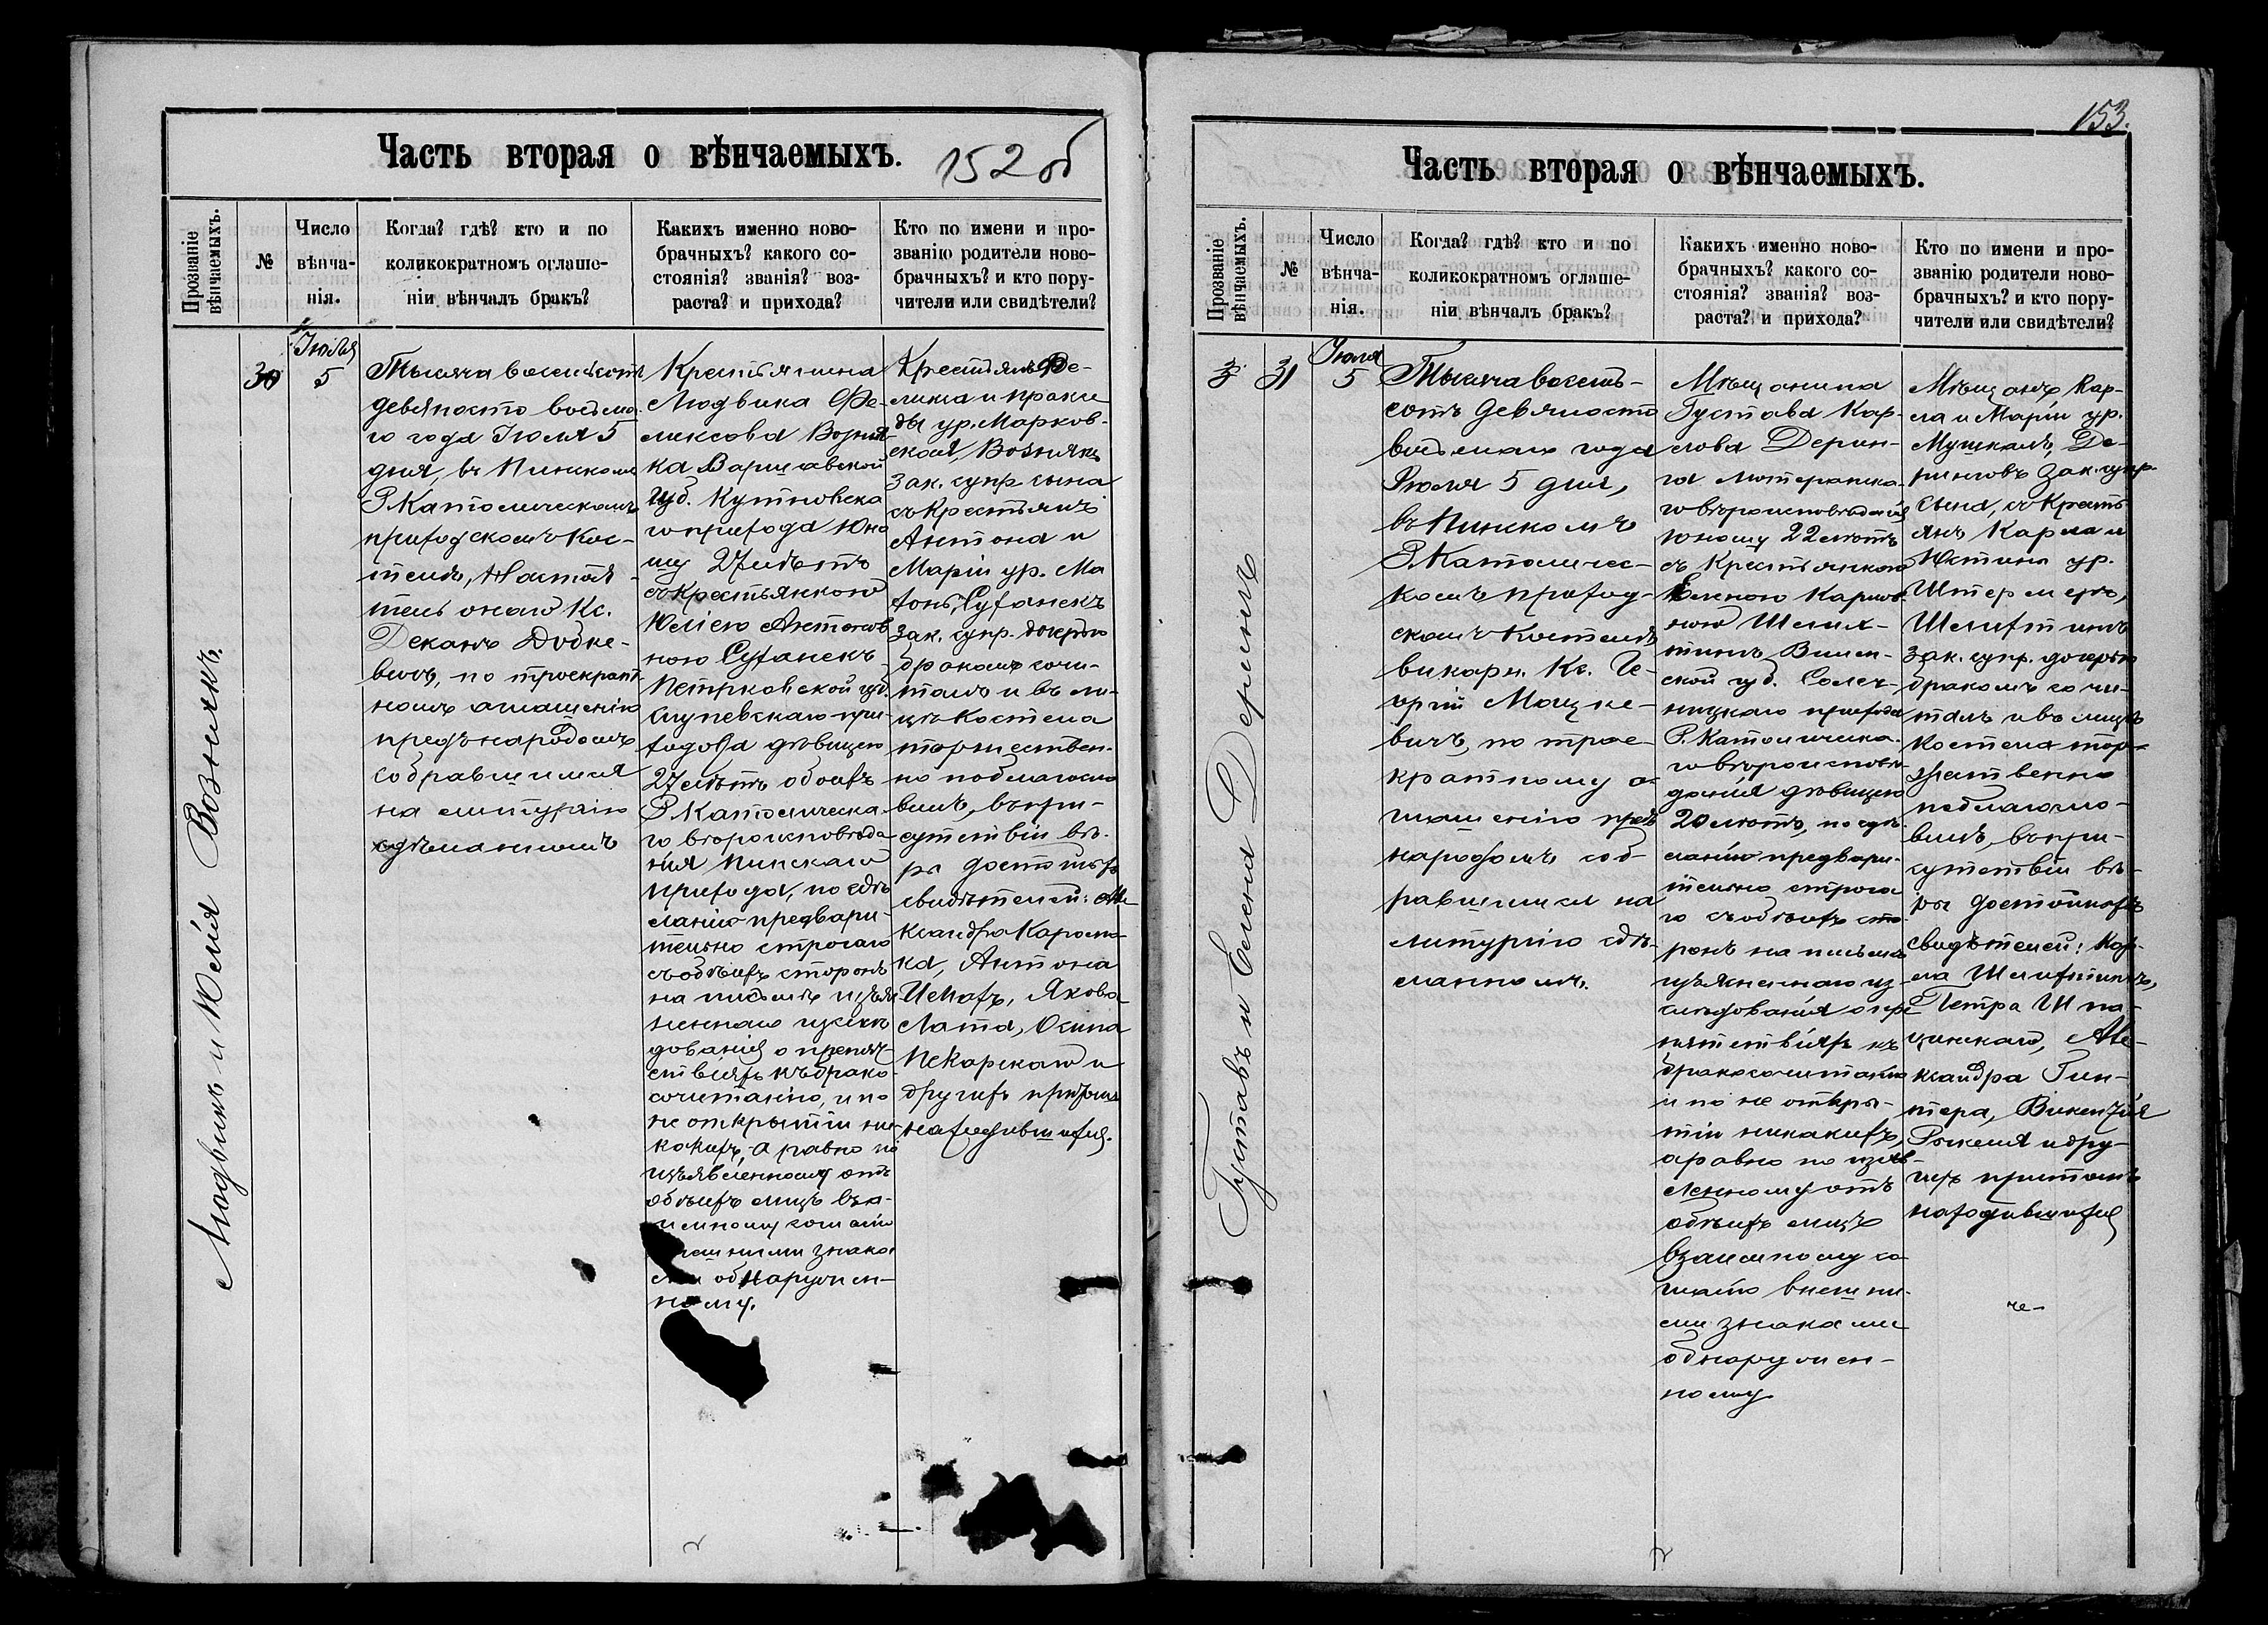 Часть вторая о вѣнчаемыхъ.
152 об
Прозваніе вѣнчаемыхъ.
№
Число вѣнча-нія.
Когда? гдѣ? кто и по
коликократномъ оглаше-
ніи вѣнчалъ бракъ?
Какихъ именно ново-
брачныхъ? какого со-
стоянія? званія? воз-
раста? и прихода?
Кто по имени и про-
званію родители ново-
брачныхъ? и кто пору-
чители или свидѣтели?
Людвикъ и Юлія Вознякъ.
30
Іюля
5
Тысяча восемьсотъ
девяносто восьма-
го года Іюля 5
дня, въ Пинскомъ
Р. Католическомъ
приходскомъ Кос-
телѣ, Настоя-
тель онаго Кс.
Деканъ Довке-
вичъ, по троекрат-
номъ оглашенію
предъ народомъ
собравшимся
на литургію
сдѣланномъ
Крестьянина
Людвика Фе-
ликсова Возня-
ка Варшавской
губ. Кутновска
го прихода юно
шу 27 лѣтъ
съ Крестьянкою
Юліею Антонов
ною Суханекъ
Петрковской губ.
приходова дѣвицею
27 лѣтъ обоихъ
Р. Католическа-
го вѣроисповѣда-
нія Пинскаго
прихода, по сдѣ
ланію предвари-
тельно строгаго
съ обѣихъ сторонъ
на письмѣ изъяс
неннаго изслѣ
дованія о препят-
ствіяхъ къ брако-
сочитанію, и по
не открытіи ни-
какихъ, а равно по
изъявленному отъ
обѣихъ лицъ вза-
имному согласію
внѣшними знака
ми обнаружен-
ному.
Крестьянъ Фе-
ликса и Праксе
ды ур. Марков-
ской, Вознякъ
зак. супр. сына
съ Крестьянъ
Антона и
Маріи ур. Ма
тонь, Суханекъ
зак. супр. дочерью
бракомъ сочи-
талъ и въ ли-
цѣ Костела
торжествен-
но поблагосло
вилъ, въ при-
сутствіи вѣ-
ры достойныхъ
свидѣтелей: Але
ксандра Карома-
ка, Антона
Яковa
Лата, Осипа
Пекарскаго и
другихъ при томъ
находившихся.
153.
Часть вторая о вѣнчаемыхъ.
Прозваніе вѣнчаемыхъ.
№
Число вѣнча-нія.
Когда? гдѣ? кто и по
коликократномъ оглаше-
ніи вѣнчалъ бракъ?
Какихъ именно ново-
брачныхъ? какого со-
стоянія? званія? воз-
раста? и прихода?
Кто по имени и про-
званію родители ново-
брачныхъ? и кто пору-
чители или свидѣтели?
Густавъ и Елена Дерингъ
31
Іюля
5
Тысяча восемь-
сотъ девяносто
восьмаго года
Іюля 5 дня,
въ Пинскомъ
Р. Католичес-
комъ приход-
скомъ Костелѣ
викарн. Кс. Ге-
оргій Мацке-
вичъ, по трое-
кратному ог-
лашенію предъ
народомъ соб-
равшимся на
литургію сдѣ-
ланномъ.
Мѣщанина
Густава Кар-
лова Дерин-
га Лютеранска-
го вѣроисповѣданія
юношу 22 лѣтъ
съ Крестьянкою
Еленою Карлов-
ною Шлих-
тингъ Вилен-
ской губ. Солеч-
ницкаго прихода
Р. Католическа-
го вѣроисповѣ-
данія дѣвицею
20 лѣтъ, по сдѣ
ланію предвари-
тельно строга
го съ обѣихъ сто-
ронъ на письмѣ
изъясненнаго из-
слѣдованія о пре
пятствіяхъ къ
бракосочитанію
и по не откры-
тіи никакихъ,
а равно по изъяв-
ленному отъ
обѣихъ лицъ
взаимному со-
гласію внѣшни-
ми знаками
обнаружен-
ному
Мѣщанъ Кар-
ла и Маріи ур.
Мушкалъ, Де-
ринговъ зак. супр.
сына, съ Кресть
янъ Карла и
Юстины ур.
Шлихтингъ
зак. супр. дочерью
бракомъ сочи-
талъ и въ лицѣ
Костела тор-
жественно
поблагосло-
вилъ, въ при-
сутствіи вѣ-
ры достойныхъ
свидѣтелей: Кар-
ла Шлихтингъ,
Петра Шпа-
цинскаго, Але-
ксандра Гин-
тера, Викентія
Рыкеля и дру-
гихъ при томъ
находившихся